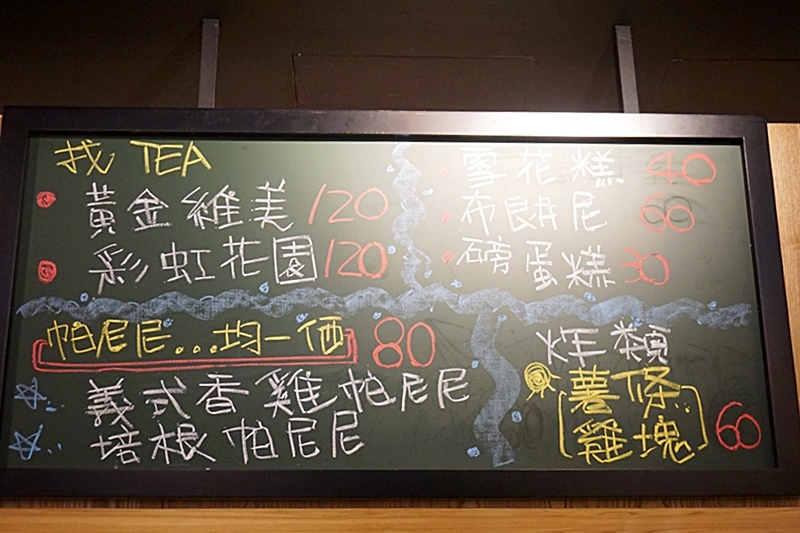 找 TEA
黃金維美 120
彩虹花園 120
雪花糕 40
布朗尼 60
磅蛋糕 30
帕尼尼...均一価 80
義式香雞帕尼尼
培根帕尼尼
炸類
薯條
雞塊 60